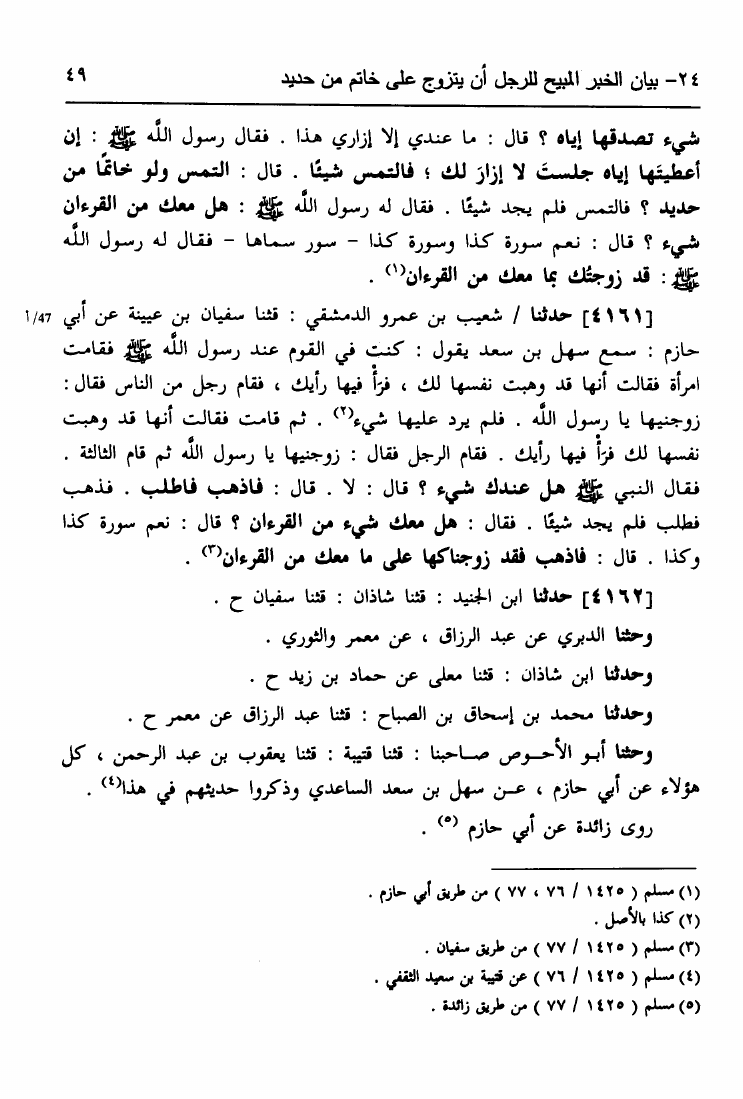 ٢٤- بيان الخبر المبيح للرجل أن يتزوج على خاتم من حديد ٤٩
شيء تصدقها إياه ؟ قال : ما عندي إلا إزاري هذا . فقال رسول اللَّه ﷺ : إن
أعطيتَها إياه جلستَ لا إزارَ لك ؛ فالتمس شيئًا . قال : التمس ولو خاتمًا من
حديد ؟ فالتمس فلم يجد شيئًا . فقال له رسول اللَّه ﷺ : هل معك من القرءان
شيء ؟ قال : نعم سورة كذا وسورة كذا – سور سماها – فقال له رسول اللَّه
ﷺ : قد زوجتُك بما معك من القرءان(١) .
[٤١٦١] حدثنا / شعيب بن عمرو الدمشقي : قثنا سفيان بن عيينة عن أبي 47/أ
حازم : سمع سهل بن سعد يقول : كنت في القوم عند رسول اللَّه ﷺ فقامت
امرأة فقالت أنها قد وهبت نفسها لك ، فَرَأْ فيها رأيك ، فقام رجل من الناس فقال :
زوجنيها يا رسول اللَّه . فلم يرد عليها شيء(٢) . ثم قامت فقالت أنها قد وهبت
نفسها لك فَرَأْ فيها رأيك . فقام الرجل فقال : زوجنيها يا رسول اللَّه ثم قام الثالثة .
فقال النبي ﷺ هل عندك شيء ؟ قال : لا . قال : فاذهب فاطلب . فذهب
فطلب فلم يجد شيئًا . فقال : هل معك شيء من القرءان ؟ قال : نعم سورة كذا
وكذا . قال : فاذهب فقد زوجناكها على ما معك من القرءان(٣) .
[٤١٦٢] حدثنا ابن الجنيد : قثنا شاذان : قثنا سفيان ح .
وحثنا الدبري عن عبد الرزاق ، عن معمر والثوري .
وحدثنا ابن شاذان : قثنا معلى عن حماد بن زيد ح .
وحدثنا محمد بن إسحاق بن الصباح : قثنا عبد الرزاق عن معمر ح .
وحثنا أبو الأحوص صاحبنا : قثنا قتيبة : قثنا يعقوب بن عبد الرحمن ، كل
هؤلاء عن أبي حازم ، عن سهل بن سعد الساعدي وذكروا حديثهم في هذا(٤) .
روى زائدة عن أبي حازم (٥) .
(١) مسلم ( ١٤٢٥ / ٧٦ ، ٧٧ ) من طريق أبي حازم .
(٢) كذا بالأصل .
(٣) مسلم ( ١٤٢٥ / ٧٧ ) من طريق سفيان .
(٤) مسلم ( ١٤٢٥ / ٧٦ ) عن قتيبة بن سعيد الثقفي .
(٥) مسلم ( ١٤٢٥ / ٧٧ ) من طريق زائدة .